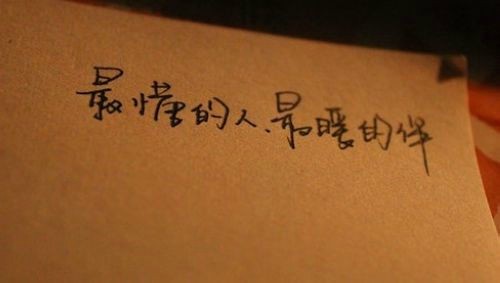 最懂的人.最暖的伴